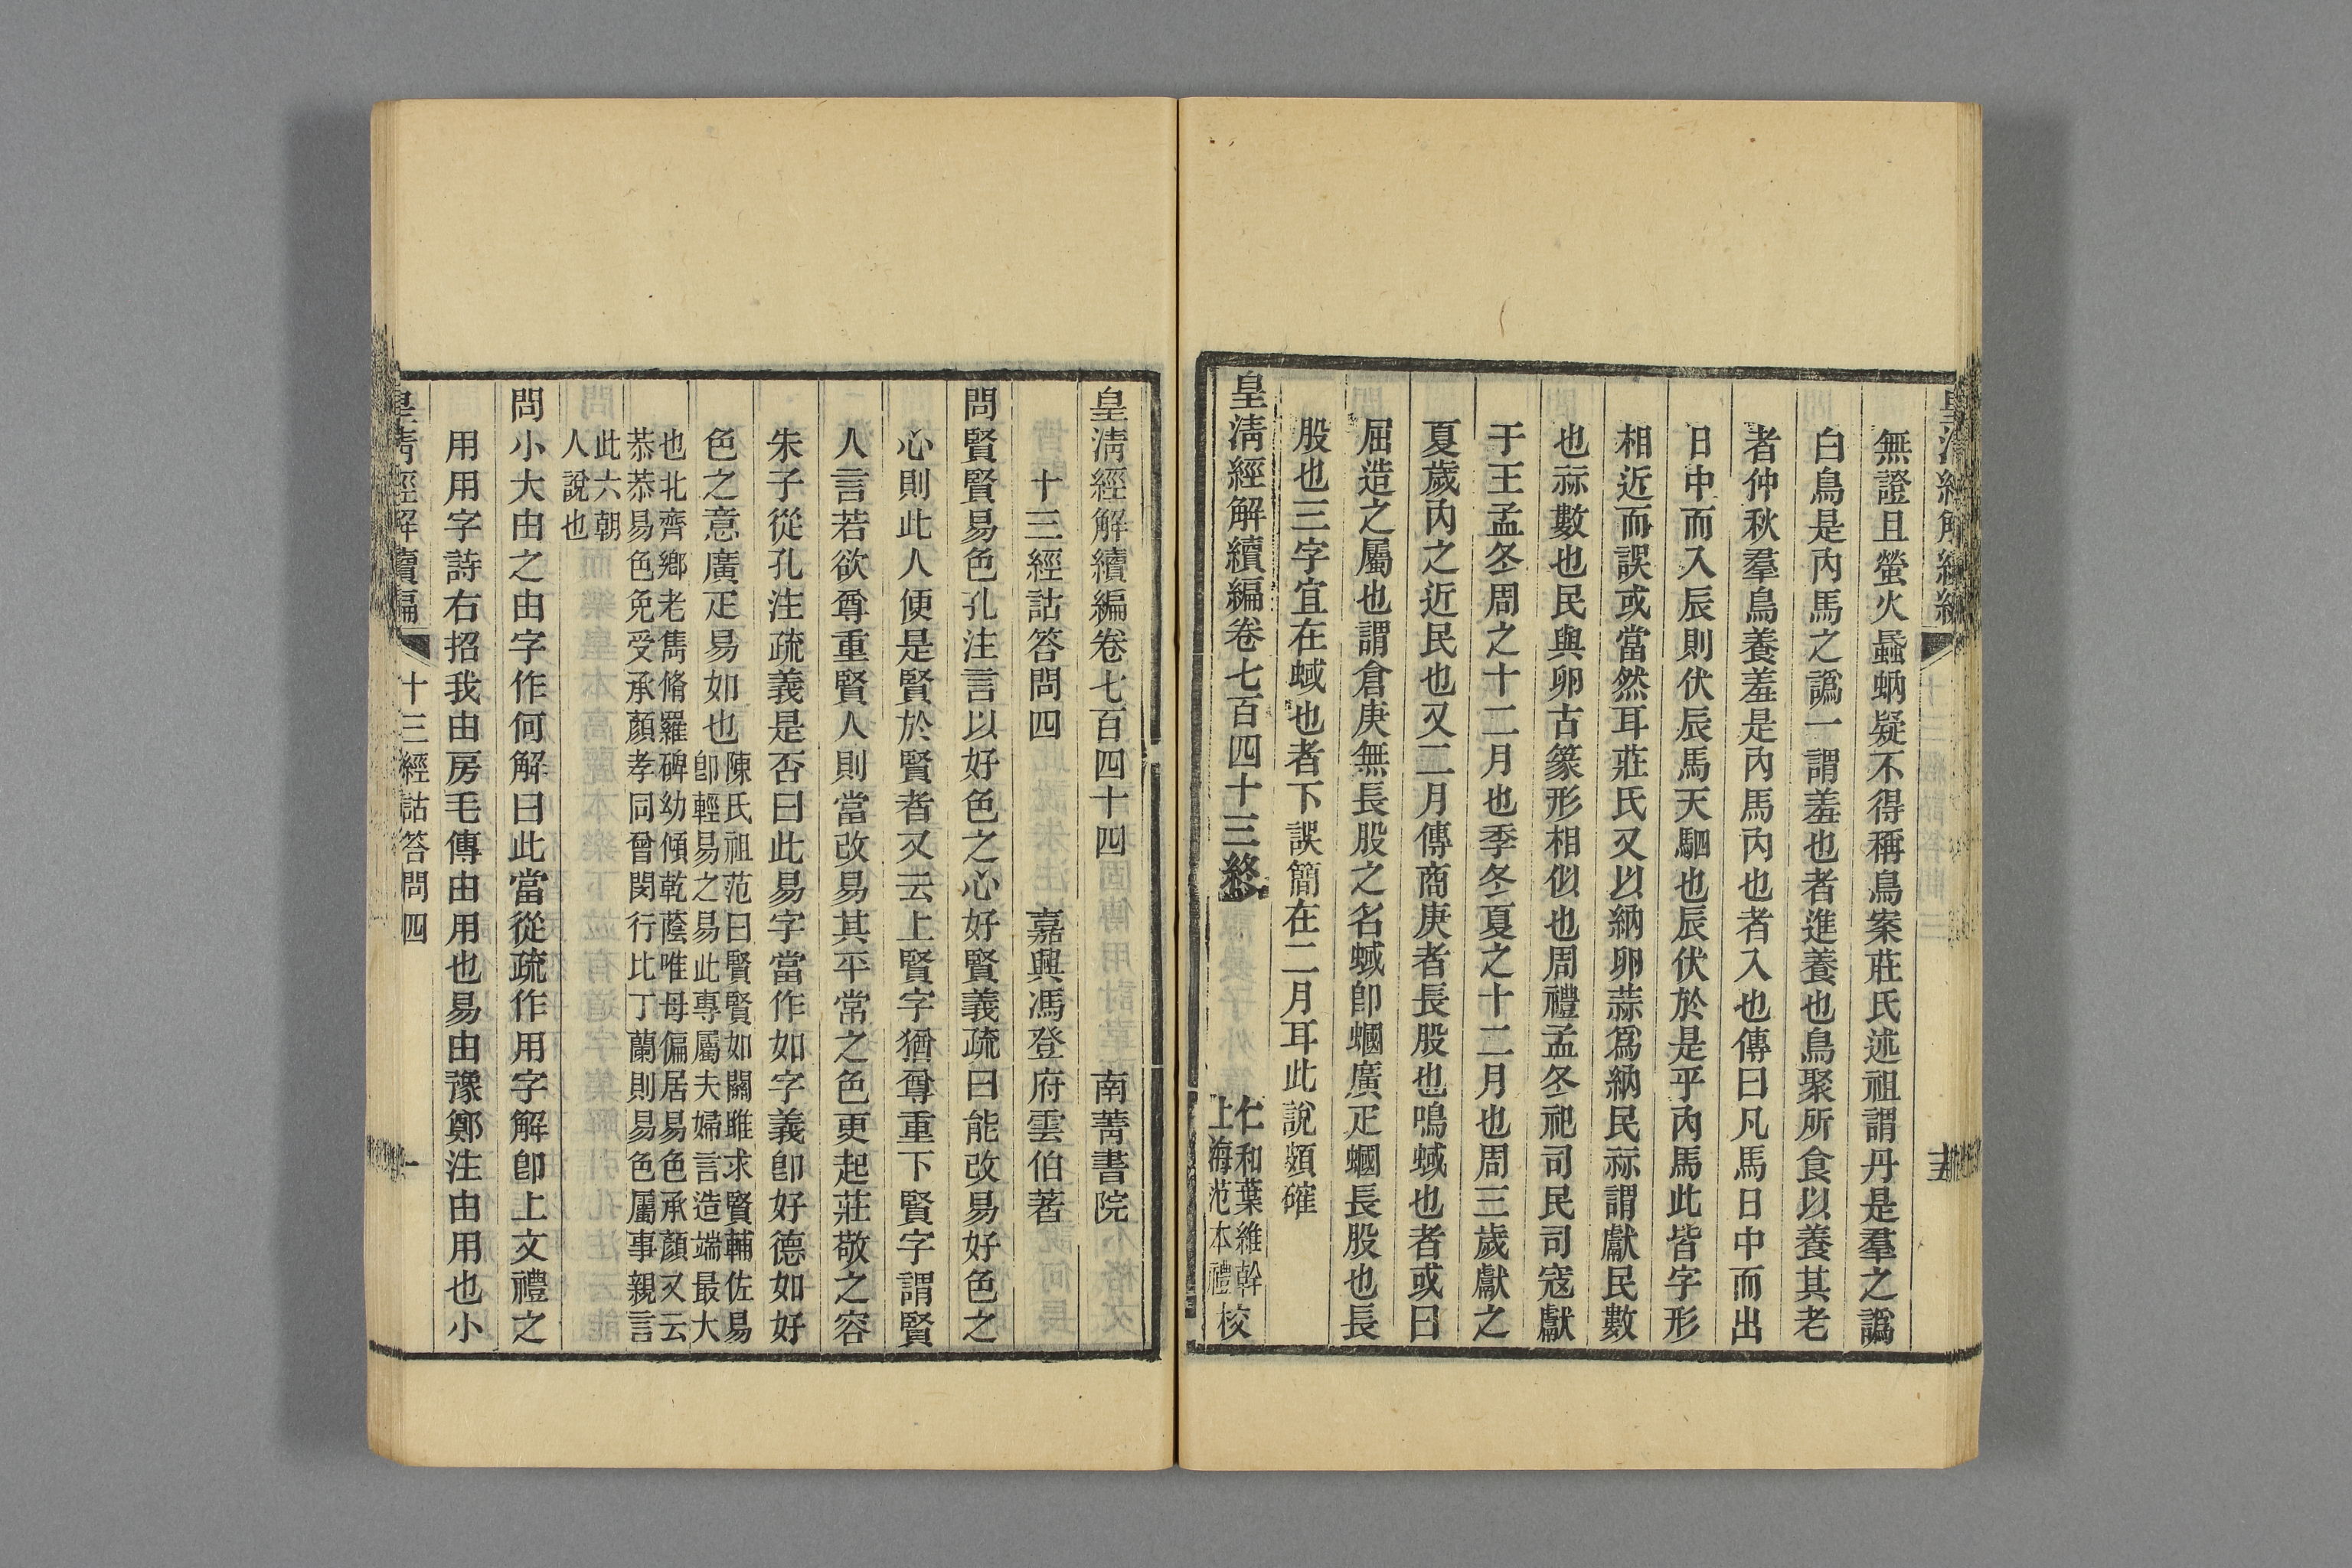 無證且螢火蟁蚋疑不得稱鳥案莊氏述祖謂丹是羣之譌
白鳥是丙馬之譌一謂羞也者進養也鳥聚所食以養其老
者仲秋羣鳥養羞是內馬內也者入也傳曰凡馬日中而出
日中而入辰則伏辰馬天駟也辰伏於是乎內馬此皆字形
相近而誤或當然耳莊氏又以納卵蒜爲納民祘謂獻民數
也祘數也民與卵古篆形相似也周禮孟冬祀司民司寇獻
于王孟冬周之十二月也季冬夏之十二月也周三歲獻之
夏歲內之近民也又二月傳商庚者長股也鳴蜮也者或曰
屈造之屬也謂倉庚無長股之名蜮卽蟈廣疋蟈長股也長
股也三字宜在蜮也者下誤簡在二月耳此說頗確
皇淸經解續編卷七百四十三終
仁和葉維幹
上海范本禮
校
皇淸經解續編卷七百四十四 南菁書院
十三經詁答問四 嘉興馮登府雲伯著
問賢賢易色孔注言以好色之心好賢義疏曰能改易好色之
心則此人便是賢於賢者又云上賢字猶尊重下賢字謂賢
人言若欲尊重賢人則當改易其平常之色更起莊敬之容
朱子從孔注疏義是否曰此易字當作如字義卽好德如好
色之意廣疋易如也
陳氏祖范曰賢賢如關雎求賢輔佐易
卽輕易之易此專屬夫婦言造端最大
也北齊鄉老雋脩羅碑幼傾乾蔭唯母偏居易色承顏又云
恭恭易色免受承顏孝同曾閔行比丁蘭則易色屬事親言
此六朝
人說也
問小大由之由字作何解曰此當從疏作用字解卽上文禮之
用用字詩右招我由房毛傳由用也易由豫鄭注由用也小
皇淸經解續編
十三經詁答問四
一